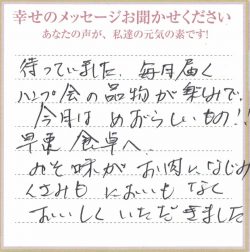 幸せのメッセージお聞かせください
あなたの声が、私達の元気の素です!
待っていました。毎月届く
ハンプ会の品物が楽しみで、
今月は めずらしいもの!!
早束 食卓へ
みそ味が お肉になじみ
くさみも においも なく
おいしく いただきました